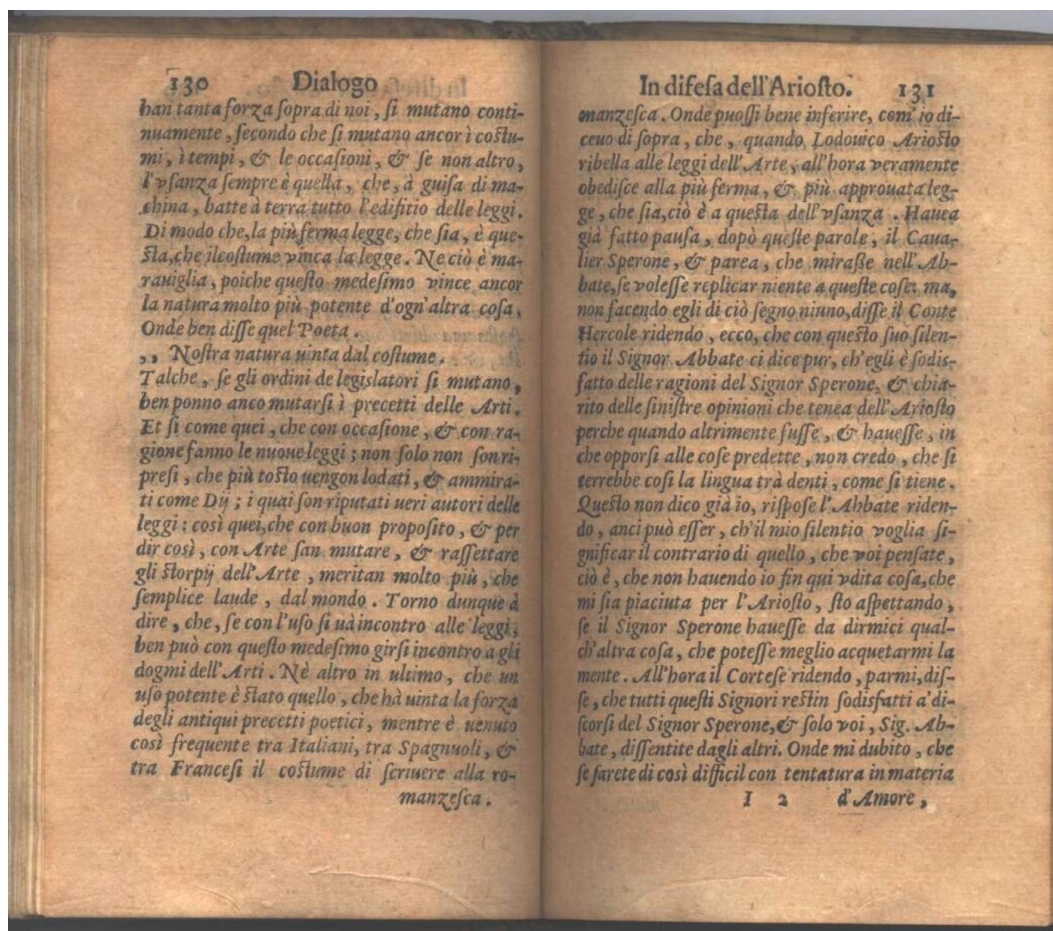 130 Dialogo
han tanta forza ſopra di noi, ſi mutano conti-
nuamente, ſecondo che ſi mutano ancor i coſtu-
mi, i tempi, & le occaſioni, & ſe non altro,
l'vſanza ſempre è quella, che, à guiſa di ma-
china, batte à terra tutto l'edifitio delle leggi.
Di modo che, la più ferma legge, che ſia, è que-
ſta, che il coſtume vinca la legge. Ne ciò è ma-
rauiglia, poiche queſto medeſimo vince ancor
la natura molto più potente d'ogn'altra coſa.
Onde ben diſſe quel Poeta.
,, Noſtra natura uinta dal coſtume.
Talche, ſe gli ordini de legislatori ſi mutano,
ben ponno anco mutarſi i precetti delle Arti.
Et ſi come quei, che con occaſione, & con ra-
gione fanno le nuoue leggi; non ſolo non ſon ri-
preſi, che più toſto uengon lodati, & ammira-
ti come Dij; i quai ſon riputati ueri autori delle
leggi: così quei, che con buon propoſito, & per
dir così, con Arte ſan mutare, & raſſettare
gli ſtorpij dell'Arte, meritan molto più, che
ſemplice laude, dal mondo. Torno dunque à
dire, che, ſe con l'uſo ſi uà incontro alle leggi,
ben può con queſto medeſimo girſi incontro a gli
dogmi dell'Arti. Nè altro in ultimo, che un
uſo potente è ſtato quello, che hà uinta la forza
degli antiqui precetti poetici, mentre è uenuto
così frequente tra Italiani, tra Spagnuoli, &
tra Franceſi il coſtume di ſcriuere alla ro-
manzeſca.
In difeſa dell'Arioſto. 131
manzeſca. Onde puoſſi bene inferire, com'io di-
ceuo di ſopra, che, quando Lodouico Arioſto
ribella alle leggi dell'Arte, all'hora veramente
obediſce alla più ferma, & più approuata leg-
ge, che ſia, ciò è a queſta dell'vſanza. Hauea
già fatto pauſa, dopò queſte parole, il Caua-
lier Sperone, & parea, che miraſſe nell'Ab-
bate, ſe voleſſe replicar niente a queſte coſe: ma,
non facendo egli di ciò ſegno niuno, diſſe il Conte
Hercole ridendo, ecco, che con queſto ſuo ſilen-
tio il Signor Abbate ci dice pur, ch'egli è ſodis-
fatto delle ragioni del Signor Sperone, & chia-
rito delle ſiniſtre opinioni che tenea dell'Arioſto
perche quando altrimente fuſſe, & haueſſe, in
che opporſi alle coſe predette, non credo, che ſi
terrebbe coſi la lingua trà denti, come ſi tiene.
Queſto non dico già io, riſpoſe l'Abbate riden-
do, anci può eſſer, ch'il mio ſilentio voglia ſi-
gnificar il contrario di quello, che voi penſate,
ciò è, che non hauendo io fin qui vdita coſa, che
mi ſia piaciuta per l'Arioſto, ſto aſpettando,
ſe il Signor Sperone haueſſe da dirmici qual-
ch'altra coſa, che poteſſe meglio acquetarmi la
mente. All'hora il Corteſe ridendo, parmi, diſ-
ſe, che tutti queſti Signori reſtin ſodisfatti a' di-
ſcorſi del Signor Sperone, & ſolo voi, Sig. Ab-
bate, diſſentite dagli altri. Onde mi dubito, che
ſe ſarete di così difficil con tentatura in materia
I 2 d'Amore,